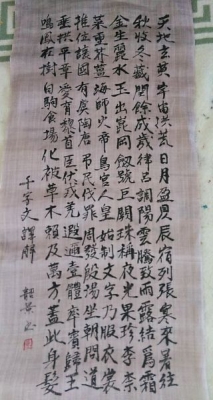 天地玄黃宇宙洪荒日月盈昃辰宿列張寒來暑往
秋收冬藏閏餘成歲律呂調陽雲騰致雨露結爲霜
金生麗水玉出崑岡劍號巨闕珠稱夜光果珍李柰
菜重芥薑海師火帝鳥官人皇始制文字乃服衣裳
推位讓國有虞陶唐弔民伐罪周發殷湯坐朝問道
垂拱平章愛育黎首臣伏戎羌遐邇壹體率賓歸王
鳴鳳在樹白駒食場化被草木賴及萬方蓋此身髮
千字文譯解